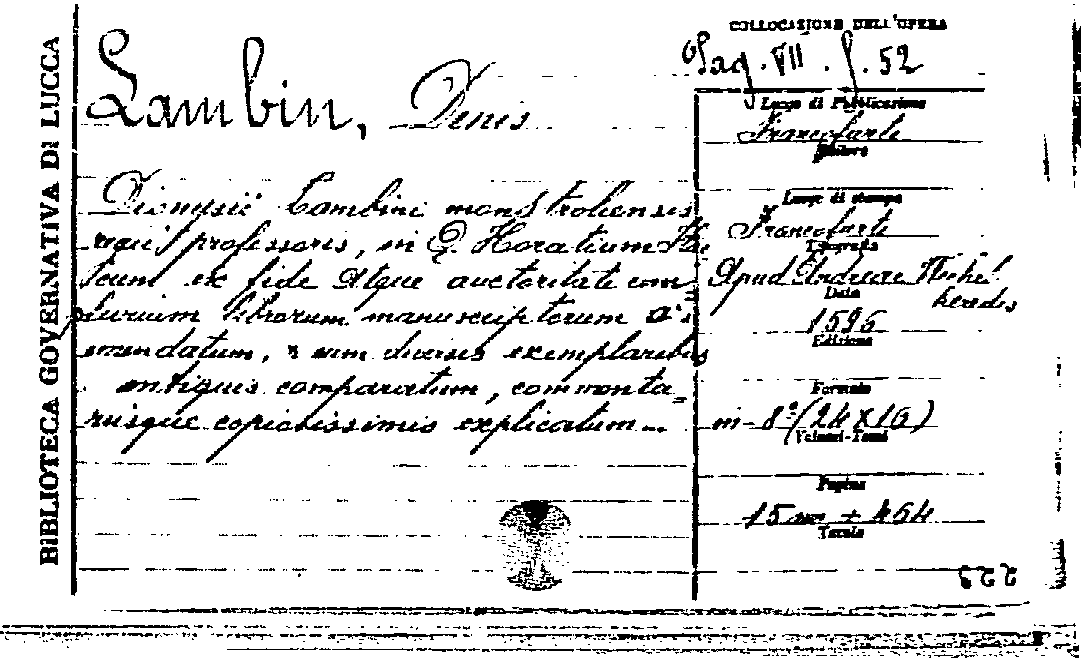 BIBLIOTECA GOVERNATIVA DI LUCCA
COLLOCAZIONE DELL'OPERA
Pag. VII. f. 52
Lambin, Denis
Dionysii Lambini monstroliensis
regii professoris, in Q. Horatium Flac
cum ex fide atque auctoritate com
plurium librorum manuscriptorum a se
emendatum, & cum diversis exemplaribus
antiquis comparatum, commenta=
riisque copiosissimis explicatum...
Luogo di Pubblicazione
Francofurti
Editore
Luogo di stampa
Francofurti
Tipografia
Apud Andreae Wechel
heredes
Data
1596
Edizione
Formato
in-8°(24x16)
Volumi-Tomi
Pagine
15 + 464
Tavole